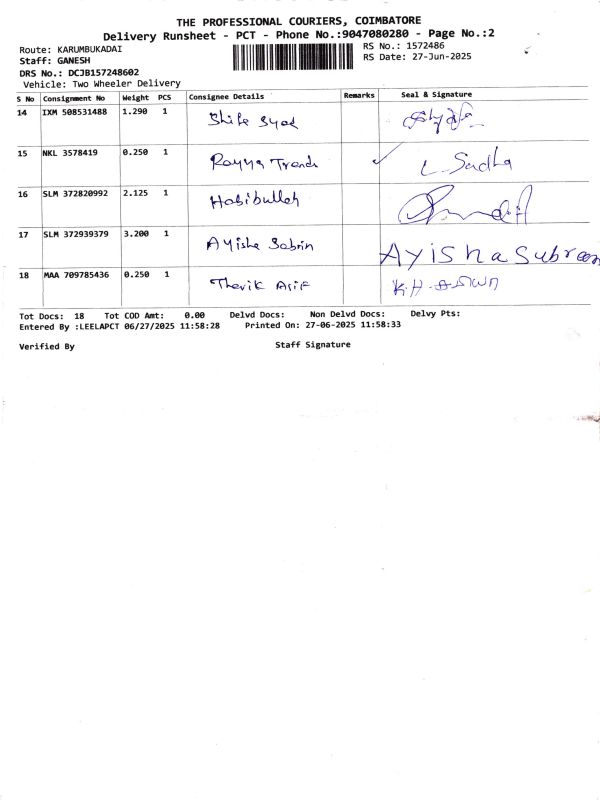 THE PROFESSIONAL COURIERS, COIMBATORE
Delivery Runsheet - PCT - Phone No.:9047080280 - Page No.:2
Route: KARUMBUKADAI RS No.: 1572486
Staff: GANESH RS Date: 27-Jun-2025
DRS No.: DCJB157248602
Vehicle: Two Wheeler Delivery
S No Consignment No Weight PCS Consignee Details Remarks Seal & Signature
14 IXM 508531488 1.290 1 Shifa Syed
15 NKL 3578419 0.250 1 Rayya Trends L. Sudha
16 SLM 372820992 2.125 1 Habibullah
17 SLM 372939379 3.200 1 Ayisha Sabrin Ayisha Subreen
18 MAA 709785436 0.250 1 Tharik Asif
Tot Docs: 18 Tot COD Amt: 0.00 Delvd Docs: Non Delvd Docs: Delvy Pts:
Entered By :LEELAPCT 06/27/2025 11:58:28 Printed On: 27-06-2025 11:58:33
Verified By Staff Signature